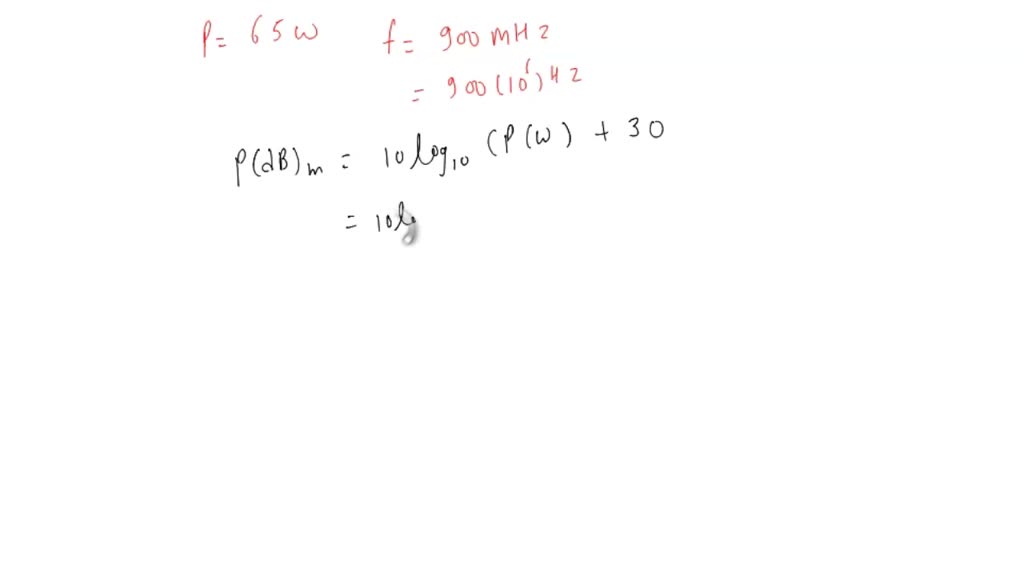 P= 65w f= 900 mHz
= 900(10⁶)Hz
P(dB)m = 10log10 (P(w) + 30
= 10lo